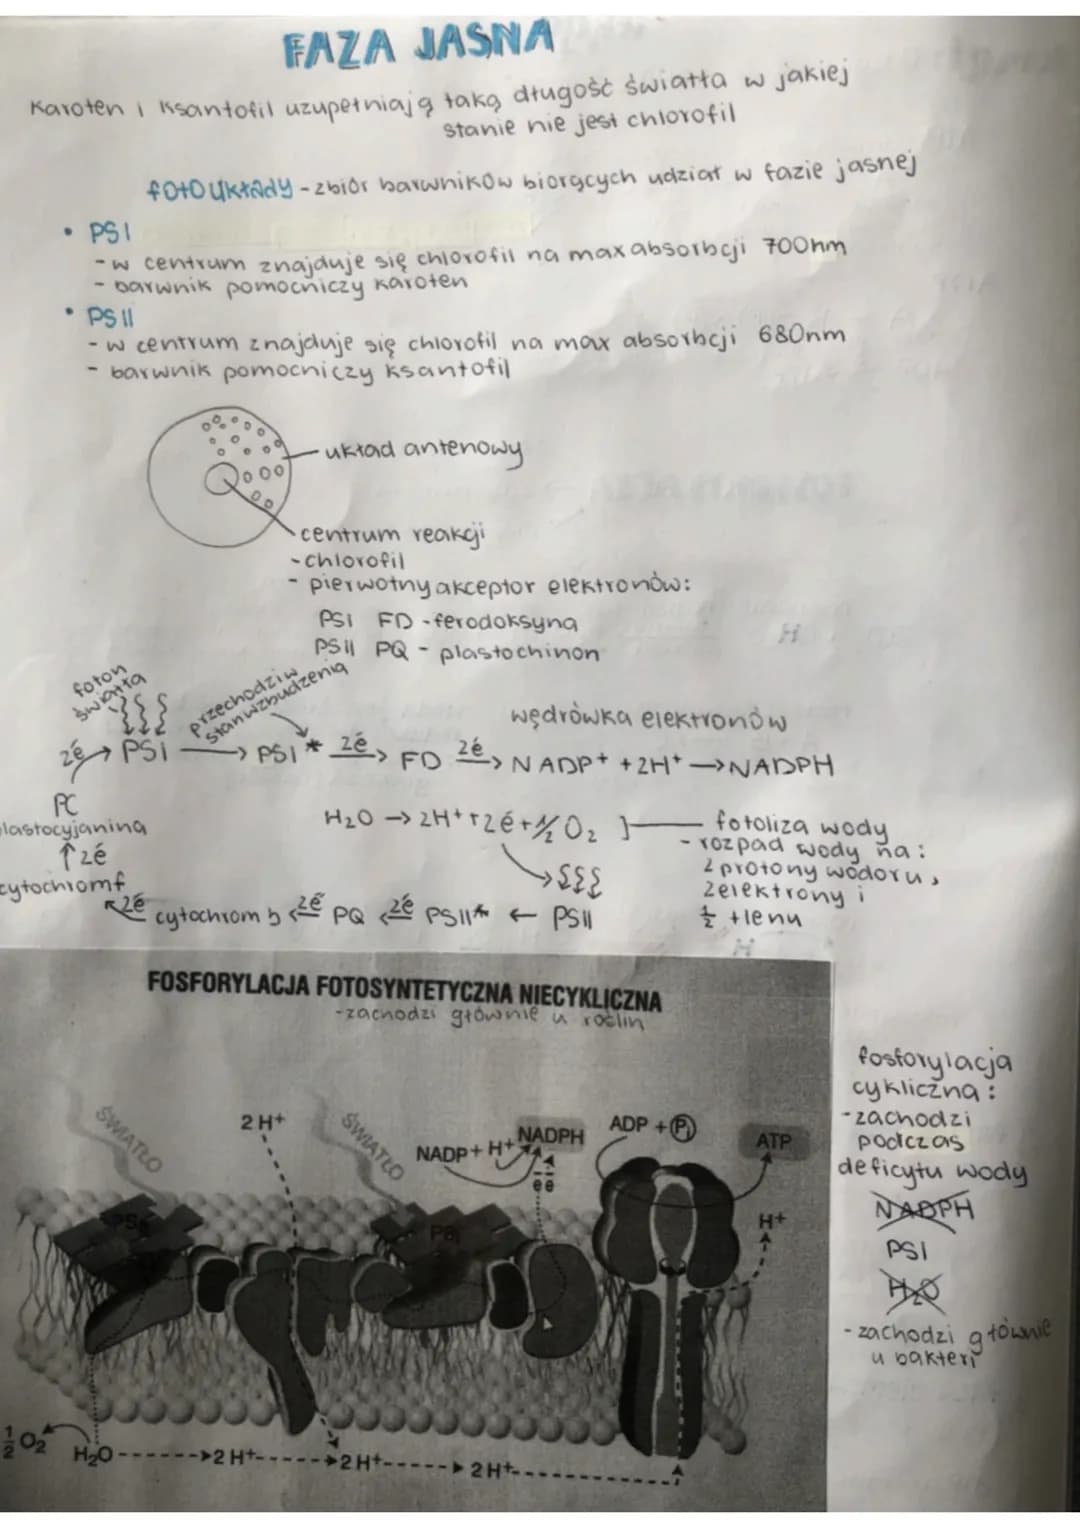 FAZA JASNA
Karoten i Ksantofil uzupełniają taką długość światła w jakiej
stanie nie jest chlorofil
fotoukłady - zbiór barwników biorących udział w fazie jasnej
• PSI
- w centrum znajduje się chlorofil na max absorbcji 700nm
- barwnik pomocniczy karoten
• PSII
- w centrum znajduje się chlorofil na max absorbcji 680nm
- barwnik pomocniczy ksantofil
układ antenowy
centrum reakcji
- chlorofil
- pierwotny akceptor elektronów:
PSI FD - ferodoksyna
PSII PQ - plastochinon
foton
światła
przechodzi w
stan wzbudzenia
wędrówka elektronów
2é → PSI → PSI* 2é → FD 2é → NADP+ + 2H+ → NADPH
PC
plastocyjanina
↑ 2é
cytochrom f
H₂O → 2H+ + 2é + ½ O₂ ] fotoliza wody
- rozpad wody na:
2 protony wodoru,
2 elektrony i
½ tlenu
2é cytochrom b 2é ← PQ 2é ← PSII* ← PSII
FOSFORYLACJA FOTOSYNTETYCZNA NIECYKLICZNA
- zachodzi głównie u roślin
ŚWIATŁO
2 H+
ŚWIATŁO
NADP+ H+
NADPH
ee
ADP + Pi
ATP
H+
½ O₂
H₂O ------→ 2 H+ -----→ 2 H+ -----→ 2 H+
fosforylacja
cykliczna:
- zachodzi
podczas
deficytu wody
NADPH
PSI
H₂O
- zachodzi głównie
u bakterii